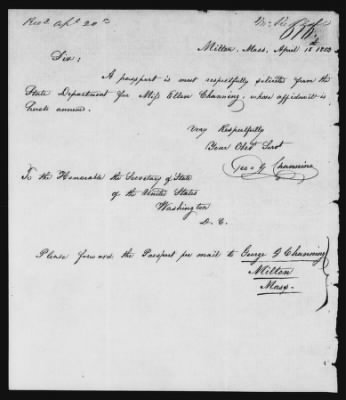 Recd Apl 20th
Milton, Mass, April 18th 1853
Sir:
A passport is most respectfully solicited from the
State Department for Miss Ellen Channing, whose affidavit is
hereto annexed.
Very Respectfully
Your Obdt Servt
Geo. G. Channing
To the Honorable the Secretary of State
of the United States
Washington
D. C.
Please forward the Passport per mail to George G Channing
Milton
Mass.